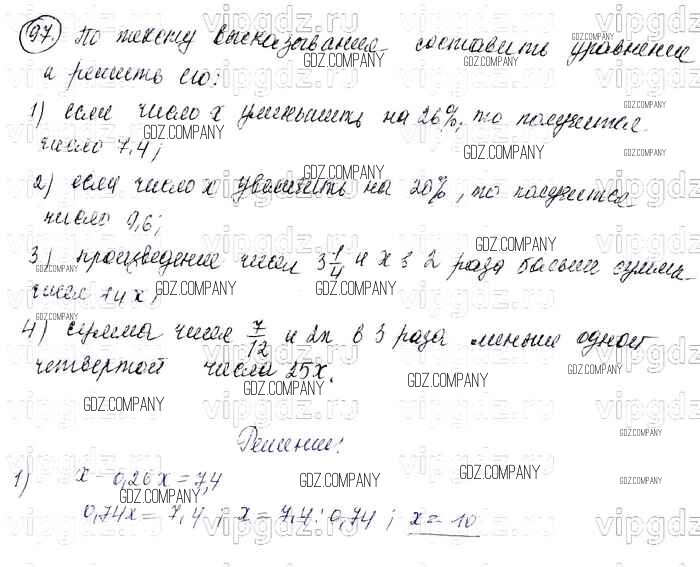 97. По тексту высказывания составить уравнение
и решить его:
1) если число x уменьшить на 26%, то получится
число 7,4;
2) если число x увеличить на 20%, то получится
число 9,6;
3) произведение чисел 3 1/4 и x в 2 раза больше суммы
чисел
4) сумма чисел 7/12 и 2x в 3 раза меньше одной
четвертой числа 25x.
Решение:
1) x - 0,26x = 7,4
0,74x = 7,4; x = 7,4 : 0,74; x = 10